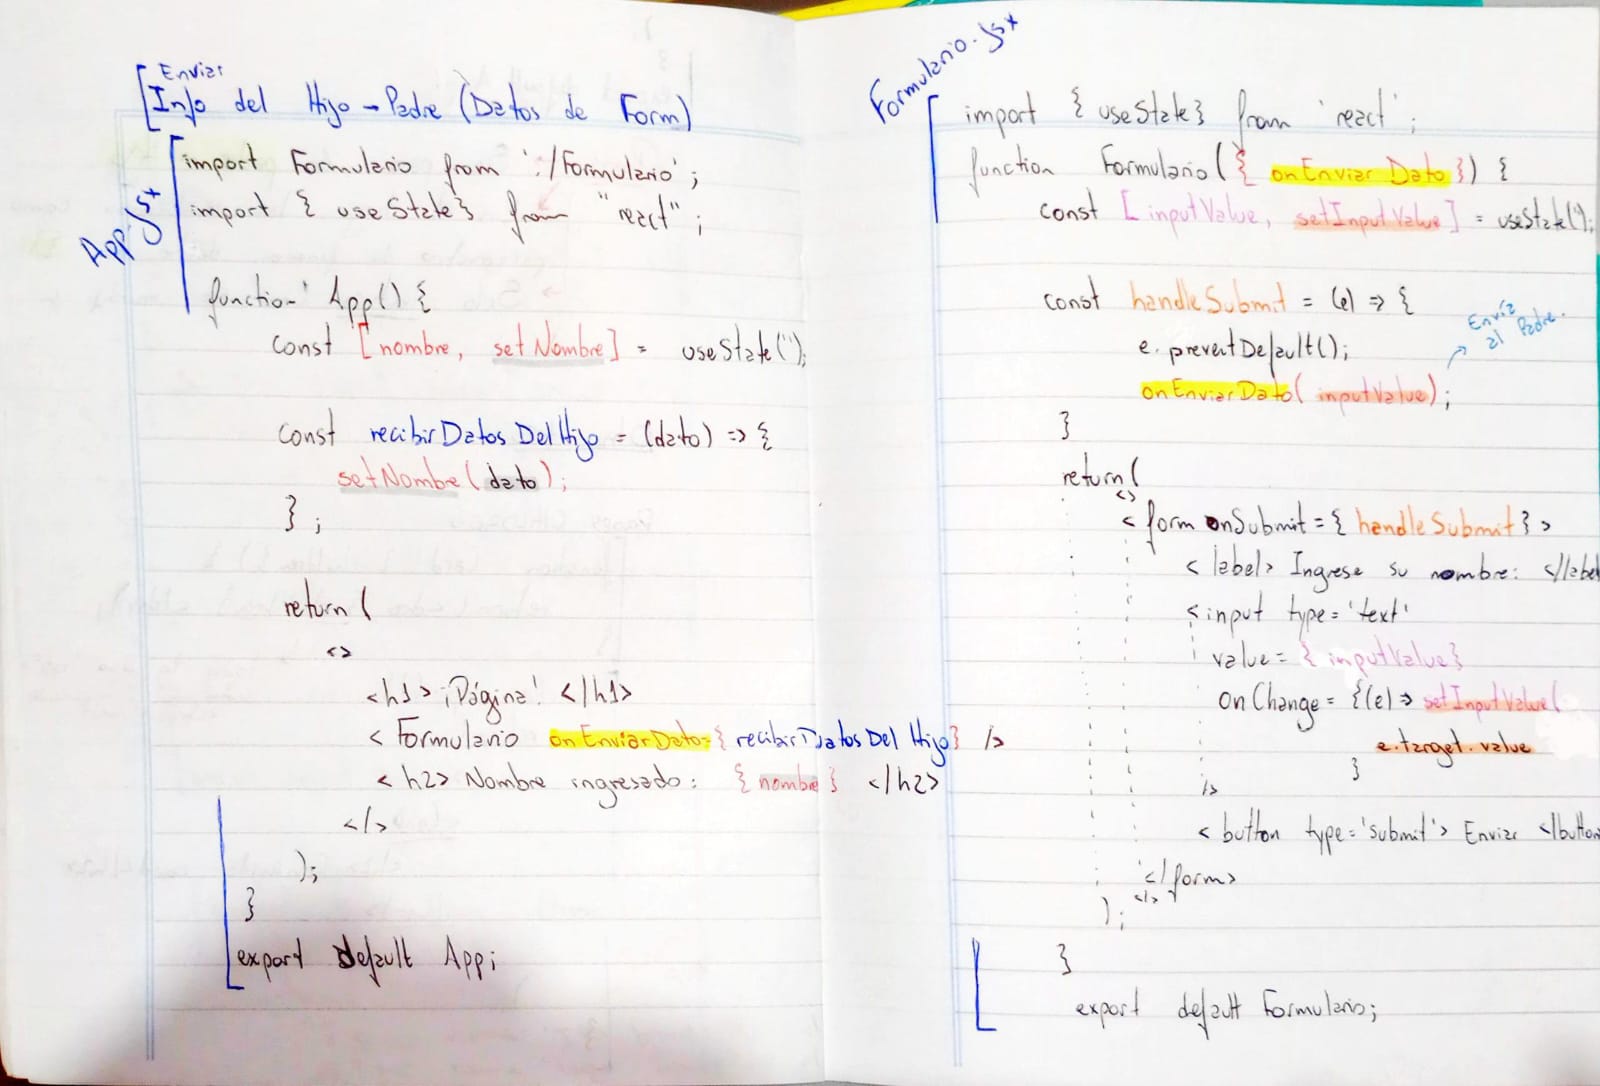 Enviar
Info del Hijo → Padre (Datos de Form)
App.jsx
import Formulario from './Formulario';
import { useState } from "react";
function App() {
const [nombre, setNombre] = useState('');
const recibirDatosDelHijo = (dato) => {
setNombre(dato);
};
return (
<>
<h1> ¡Página! </h1>
<Formulario onEnviarDato={recibirDatosDelHijo} />
<h2> Nombre ingresado: {nombre} </h2>
</>
);
}
export default App;
Formulario.jsx
import { useState } from 'react';
function Formulario({ onEnviarDato }) {
const [inputValue, setInputValue] = useState('');
const handleSubmit = (e) => {
e.preventDefault();
onEnviarDato(inputValue);
Envía
al Padre.
}
return (
<>
<form onSubmit={handleSubmit}>
<label> Ingrese su nombre: </label
<input type='text'
value={inputValue}
onChange={(e) => setInputValue(
e.target.value
}
/>
<button type='submit'> Enviar </button
</form>
</>
);
}
export default Formulario;